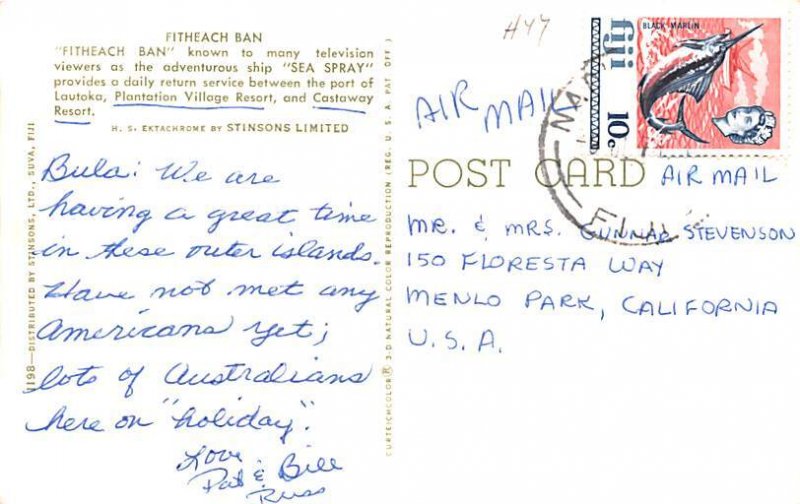 FITHEACH BAN
"FITHEACH BAN" known to many television
viewers as the adventurous ship "SEA SPRAY"
provides a daily return service between the port of
Lautoka, Plantation Village Resort, and Castaway
Resort.
H. S. EKTACHROME BY STINSONS LIMITED
1198—DISTRIBUTED BY STINSONS, LTD., SUVA, FIJI
Bula! We are
having a great time
in these outer islands.
Have not met any
Americans yet;
lots of Australians
here on "holiday".
Love
Pat & Bill
Russ
CURTEICHCOLOR® 3-D NATURAL COLOR REPRODUCTION (REG. U. S. A. PAT. OFF.)
H47
AIR MAIL
fiji
10c
BLACK MARLIN
FIJI
POST CARD
AIR MAIL
MR. & MRS. GUNNAR STEVENSON
150 FLORESTA WAY
MENLO PARK, CALIFORNIA
U.S.A.